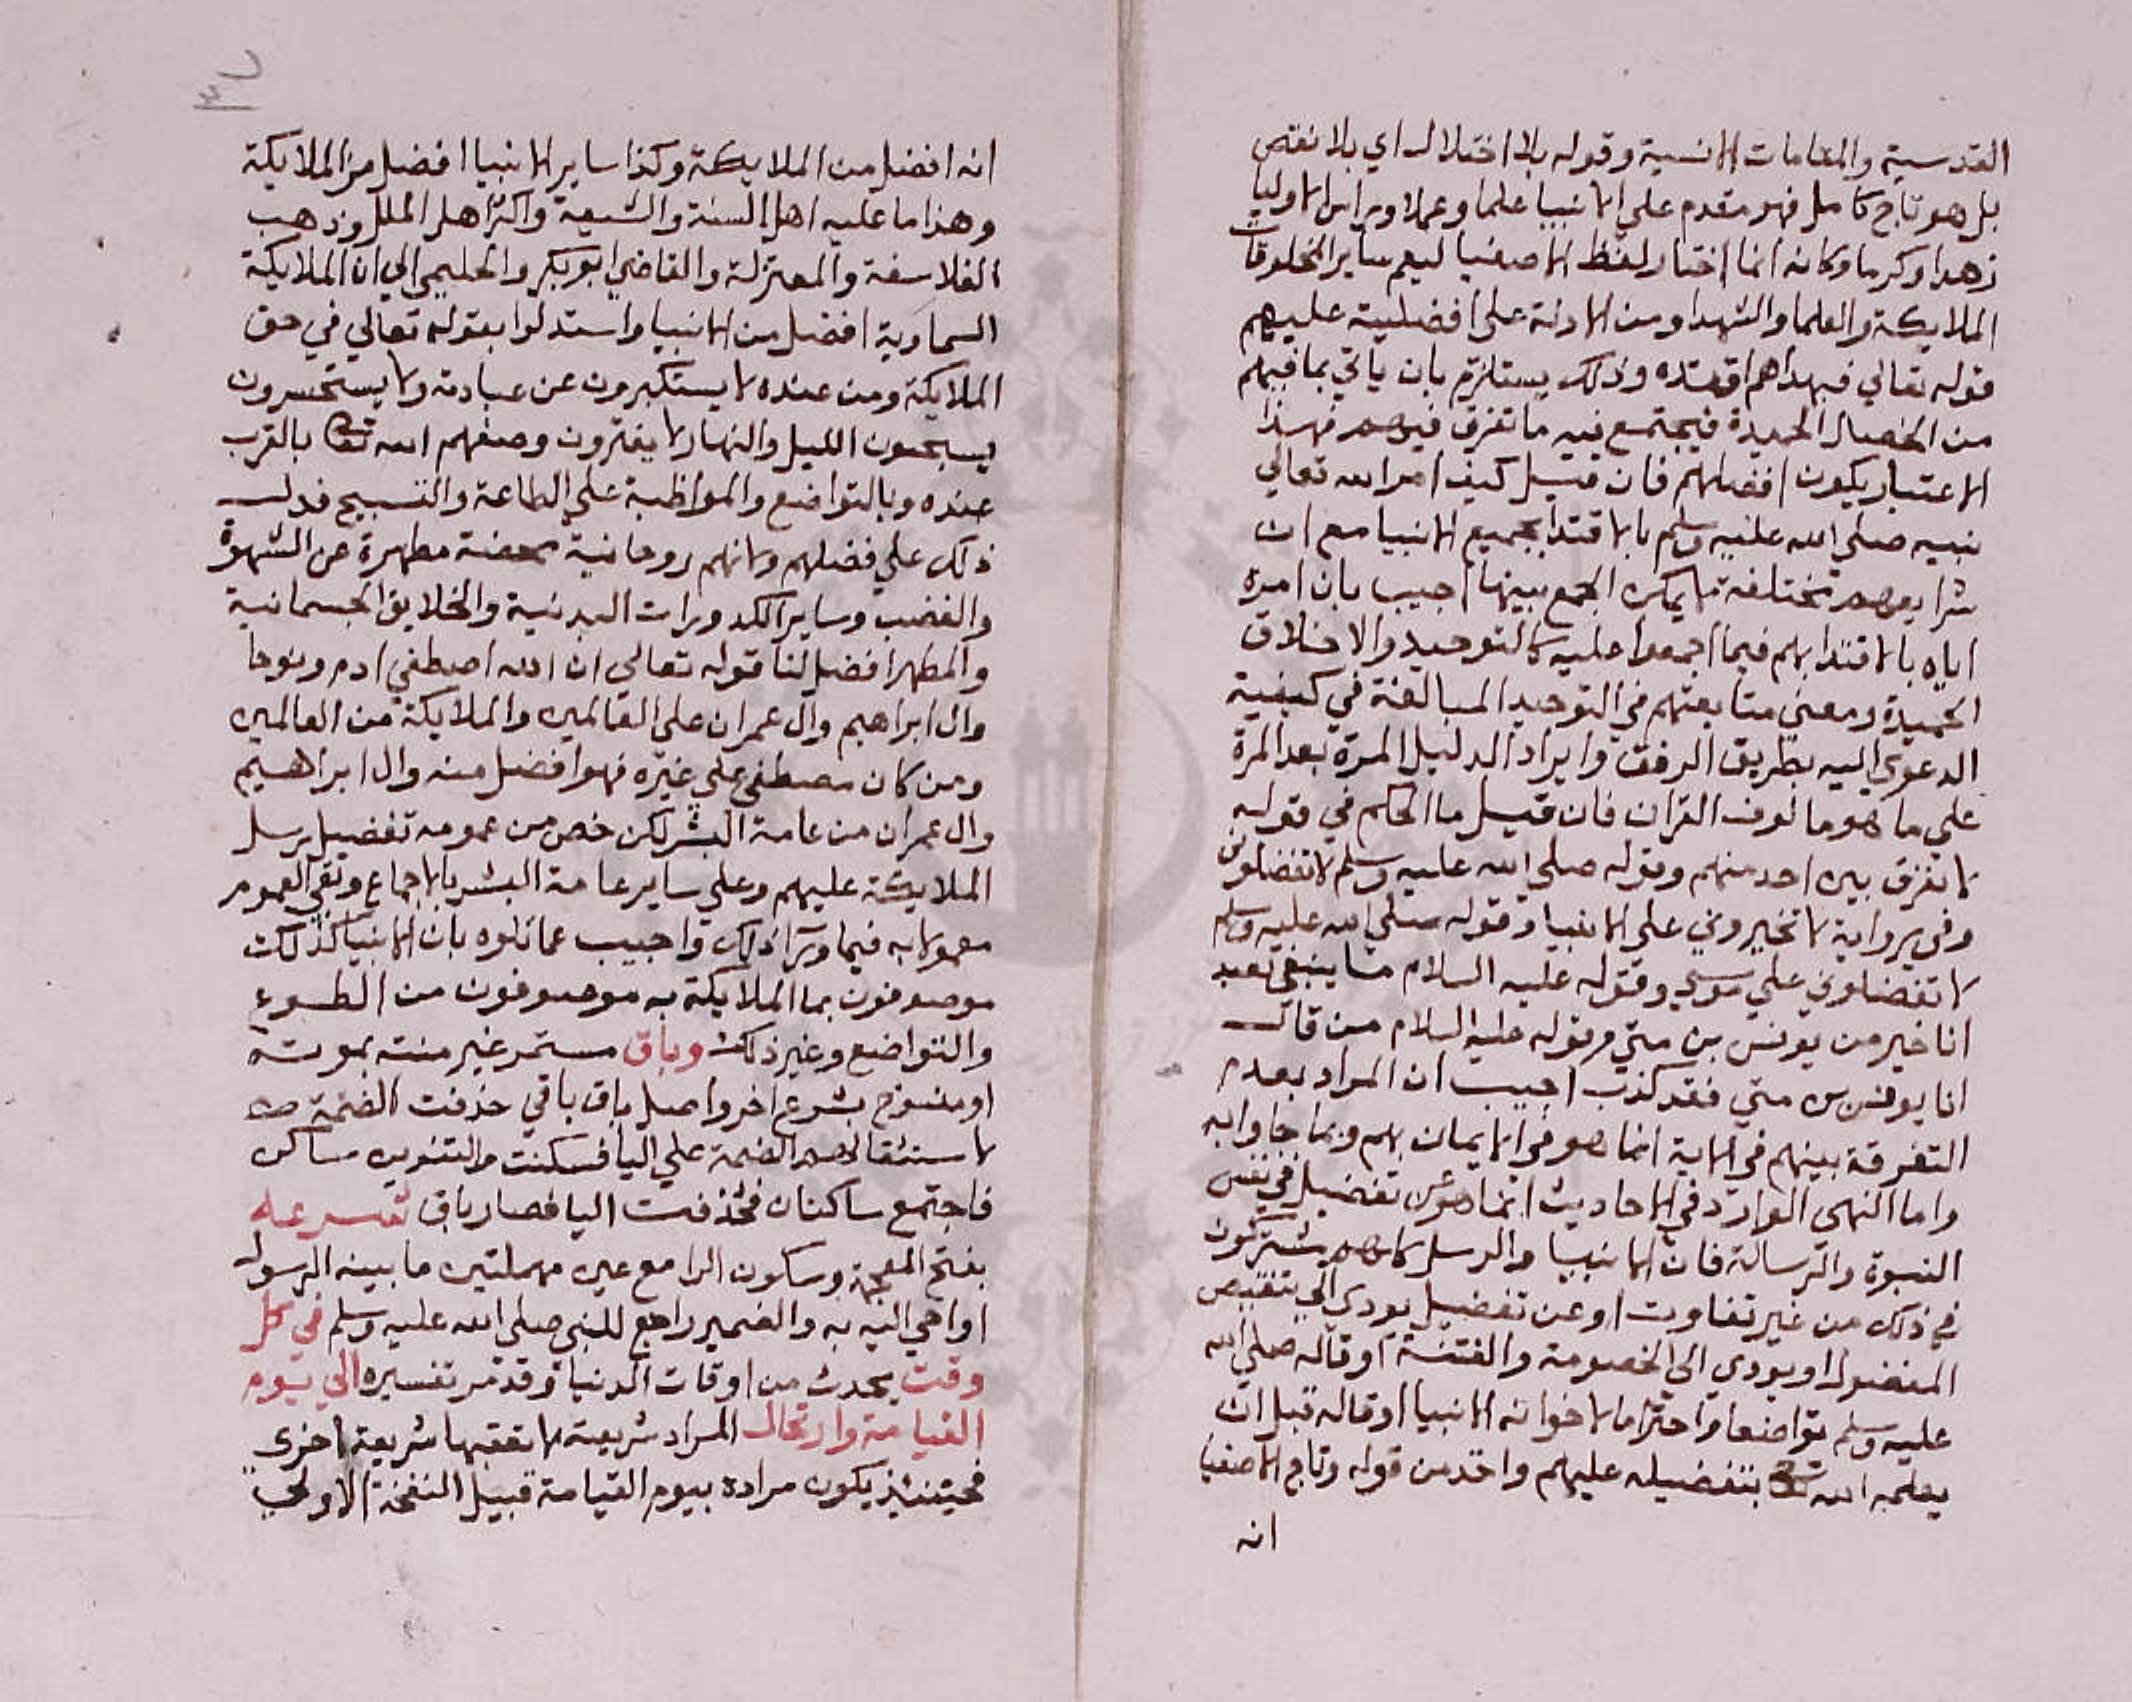 القدسية والمقامات الانسية وقوله بلا اختلال اي بلا نقص
بل هو تاج كامل فهو مقدم علي الانبيا علما وعملا وبراس الاوليا
زهدا وكرما وكانه انما اختار لفظ الاصفيا ليعم ساير المخلوقات
الملايكة والعلما والشهدا ومن الادلة علي افضليته عليهم
قوله تعالي فبهداهم اقتده وذلك يستلزم بان ياتي بما فيهم
من الخصال الحميدة فيجتمع فيه ما تفرق فيهم فهذا
الاعتبار يكون افضلهم فان قيل كيف امر الله تعالي
نبيه صلي الله عليه وسلم بالاقتدا بجميع الانبيا مع ان
شرايعهم مختلفة لا يمكن الجمع بينها اجيب بان امره
اياه بالاقتدا بهم فيما اجمعوا عليه كالتوحيد والاخلاق
الحميدة ومعني متابعتهم في التوحيد المبالغة في كيفية
الدعوي اليه بطريق الرفق وايراد الدليل المرة بعد المرة
علي ما هو مالوف القران فان قيل ما الحكم في قوله
لا نفرق بين احد منهم وقوله صلي الله عليه وسلم لا تفضلوني
وفي رواية لا تخيروني علي الانبيا وقوله صلي الله عليه وسلم
لا تفضلوني علي موسي وقوله عليه السلام ما ينبغي لعبد
انا خير من يونس بن متي وقوله عليه السلام من قال
انا يونس بن متي فقد كذب اجيب ان المراد بعدم
التفرقة بينهم في الاية انما هو في الايمان بهم وبما جاوا به
واما النهي الوارد في الاحاديث انما هو عن تفضيل في نفس
النبوة والرسالة فان الانبيا والرسل كلهم يشتركون
في ذلك من غير تفاوت او عن تفضيل يودي الي تنقيص
المفضول او يودي الي الخصومة والفتنة او قاله صلي الله
عليه وسلم تواضعا واحتراما لاخوانه الانبيا او قاله قبل ان
يعلمه الله تعالي بتفضيله عليهم واخذ من قوله وتاج الاصفيا
انه
انه افضل من الملايكة وكذا ساير الانبيا افضل من الملايكة
وهذا ما عليه اهل السنة والشيعة واكثر اهل الملل وذهب
الفلاسفة والمعتزلة والقاضي ابو بكر والحليمي الي ان الملايكة
السماوية افضل من الانبيا واستدلوا بقوله تعالي في حق
الملايكة ومن عنده لا يستكبرون عن عبادته ولا يستحسرون
يسبحون الليل والنهار لا يفترون وصفهم الله تعالي بالقرب
عنده وبالتواضع والمواظبة علي الطاعة والتسبيح فدل
ذلك علي فضلهم ولانهم روحانية محضة مطهرة عن الشهوة
والغضب وساير الكدورات البدنية والخلايق الجسمانية
والمطهر افضل لنا قوله تعالي ان الله اصطفي ادم ونوحا
وال ابراهيم وال عمران علي العالمين والملايكة من العالمين
ومن كان مصطفي علي غيره فهو افضل منه وال ابراهيم
وال عمران من عامة البشر لكن خص من عمومه تفضيل رسل
الملايكة عليهم وعلي ساير عامة البشر بالاجماع وبقي العموم
معمولا به فيما ورا ذلك واجيب عما قالوه بان الانبيا كذلك
موصوفون بما الملايكة به موصوفون من الطوع
والتواضع وغير ذلك وباق مستمر غير منته بموته
او منسوخ بشرع اخر واصل باق باقي حذفت الضمة منه
لاستثقال الضمة علي اليا فسكنت والتنوين ساكن
فاجتمع ساكنان فحذفت اليا فصار باق شرعه
بفتح المعجمة وسكون الرا مع عين مهملتين ما بينه الرسول
اواحي اليه به والضمير راجع للنبي صلي الله عليه وسلم في كل
وقت يحدث من اوقات الدنيا وقد مر تفسيره الي يوم
القيامة وارتحال المراد شريعة لا تعقبها شريعة اخري
فحينئذ يكون مراده بيوم القيامة قبيل النفخة الاولي